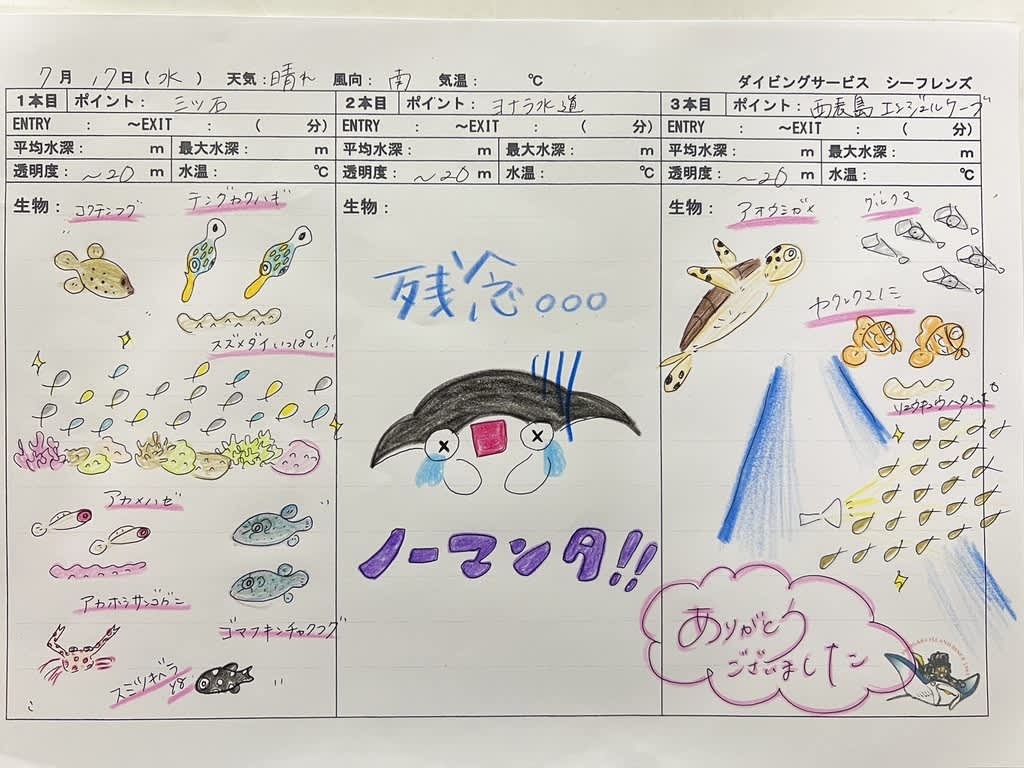 7月 17日(水) 天気:晴れ 風向:南 気温: ℃
ダイビングサービス シーフレンズ
1本目 ポイント: 三ツ石
ENTRY : ~EXIT : ( 分)
平均水深: m 最大水深: m
透明度: ~20 m 水温: ℃
生物:
コクテンフグ
テングカワハギ
スズメダイいっぱい!!
アカメハゼ
アカホシサンゴガニ
ゴマフキンチャクフグ
スミツキベラ
yg
2本目 ポイント: ヨナラ水道
ENTRY : ~EXIT : ( 分)
平均水深: m 最大水深: m
透明度: ~20 m 水温: ℃
生物:
残念。。。
ノーマンタ!!
3本目 ポイント: 西表島 エンジェルケーブ
ENTRY : ~EXIT : ( 分)
平均水深: m 最大水深: m
透明度: ~20 m 水温: ℃
生物:
アオウミガメ
グルクマ
ヤクルマエビ
リュウキュウハタンポ
ありがとう
ございました